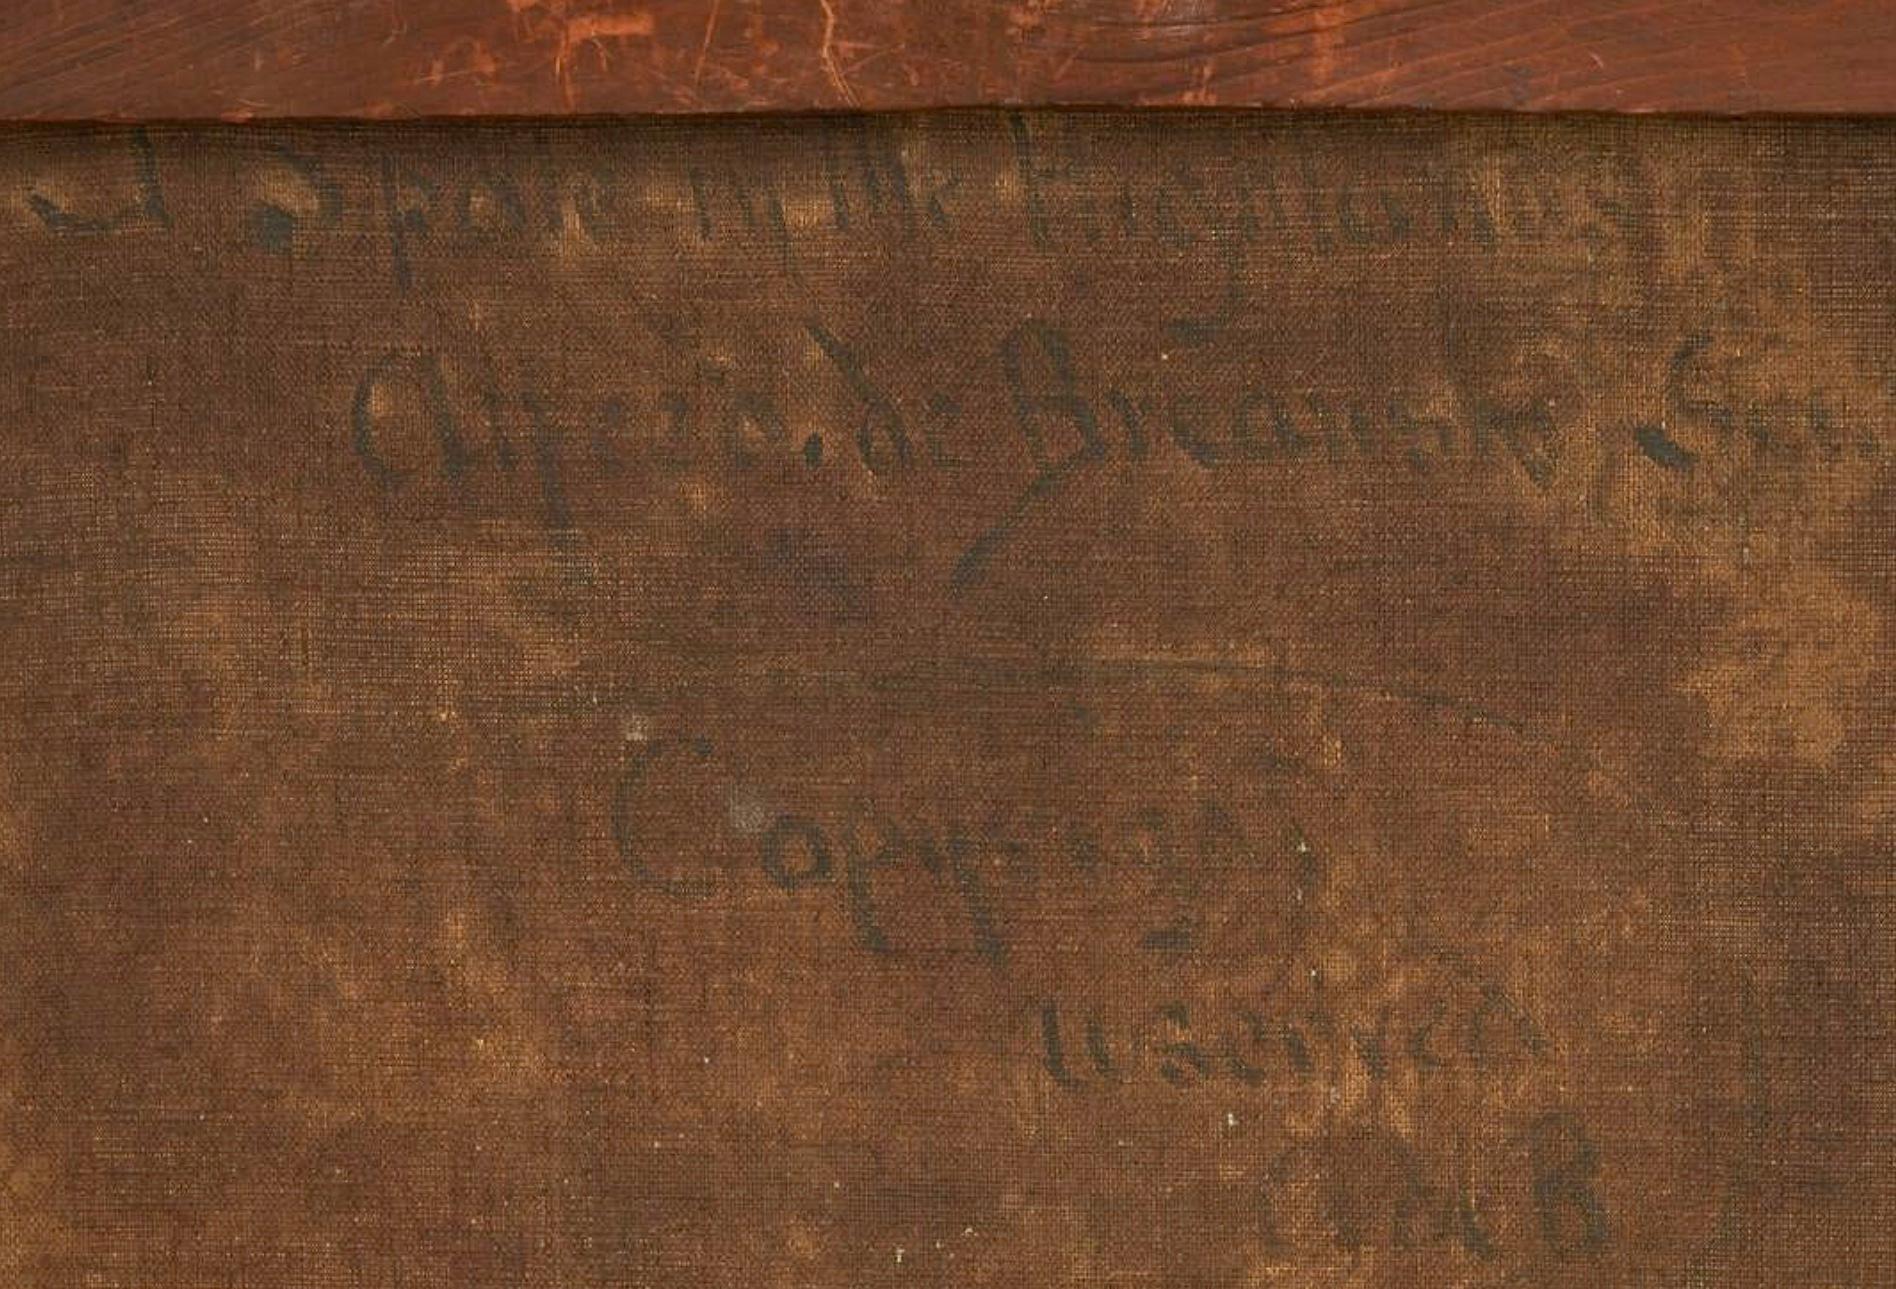 A Spate in the Highlands
Alfred. de Breanski Sen
Copyright
reserved
AdeB